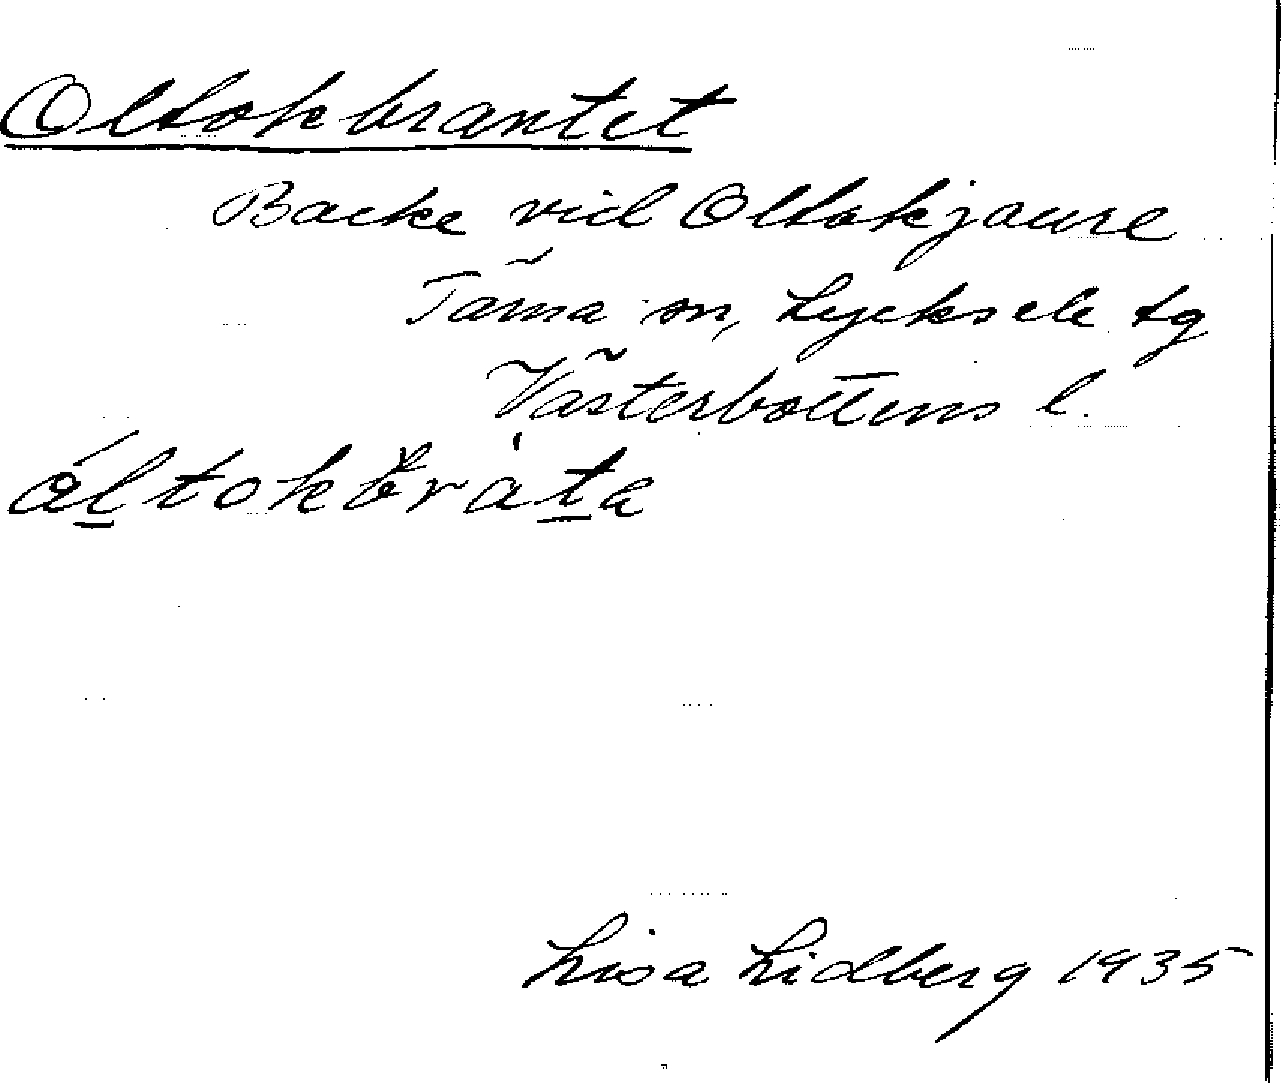 Oltokbrantet
Backe vid Oltokjaure
Tärna sn, Lycksele tg
Västerbottens l.
Lisa Lidberg 1935